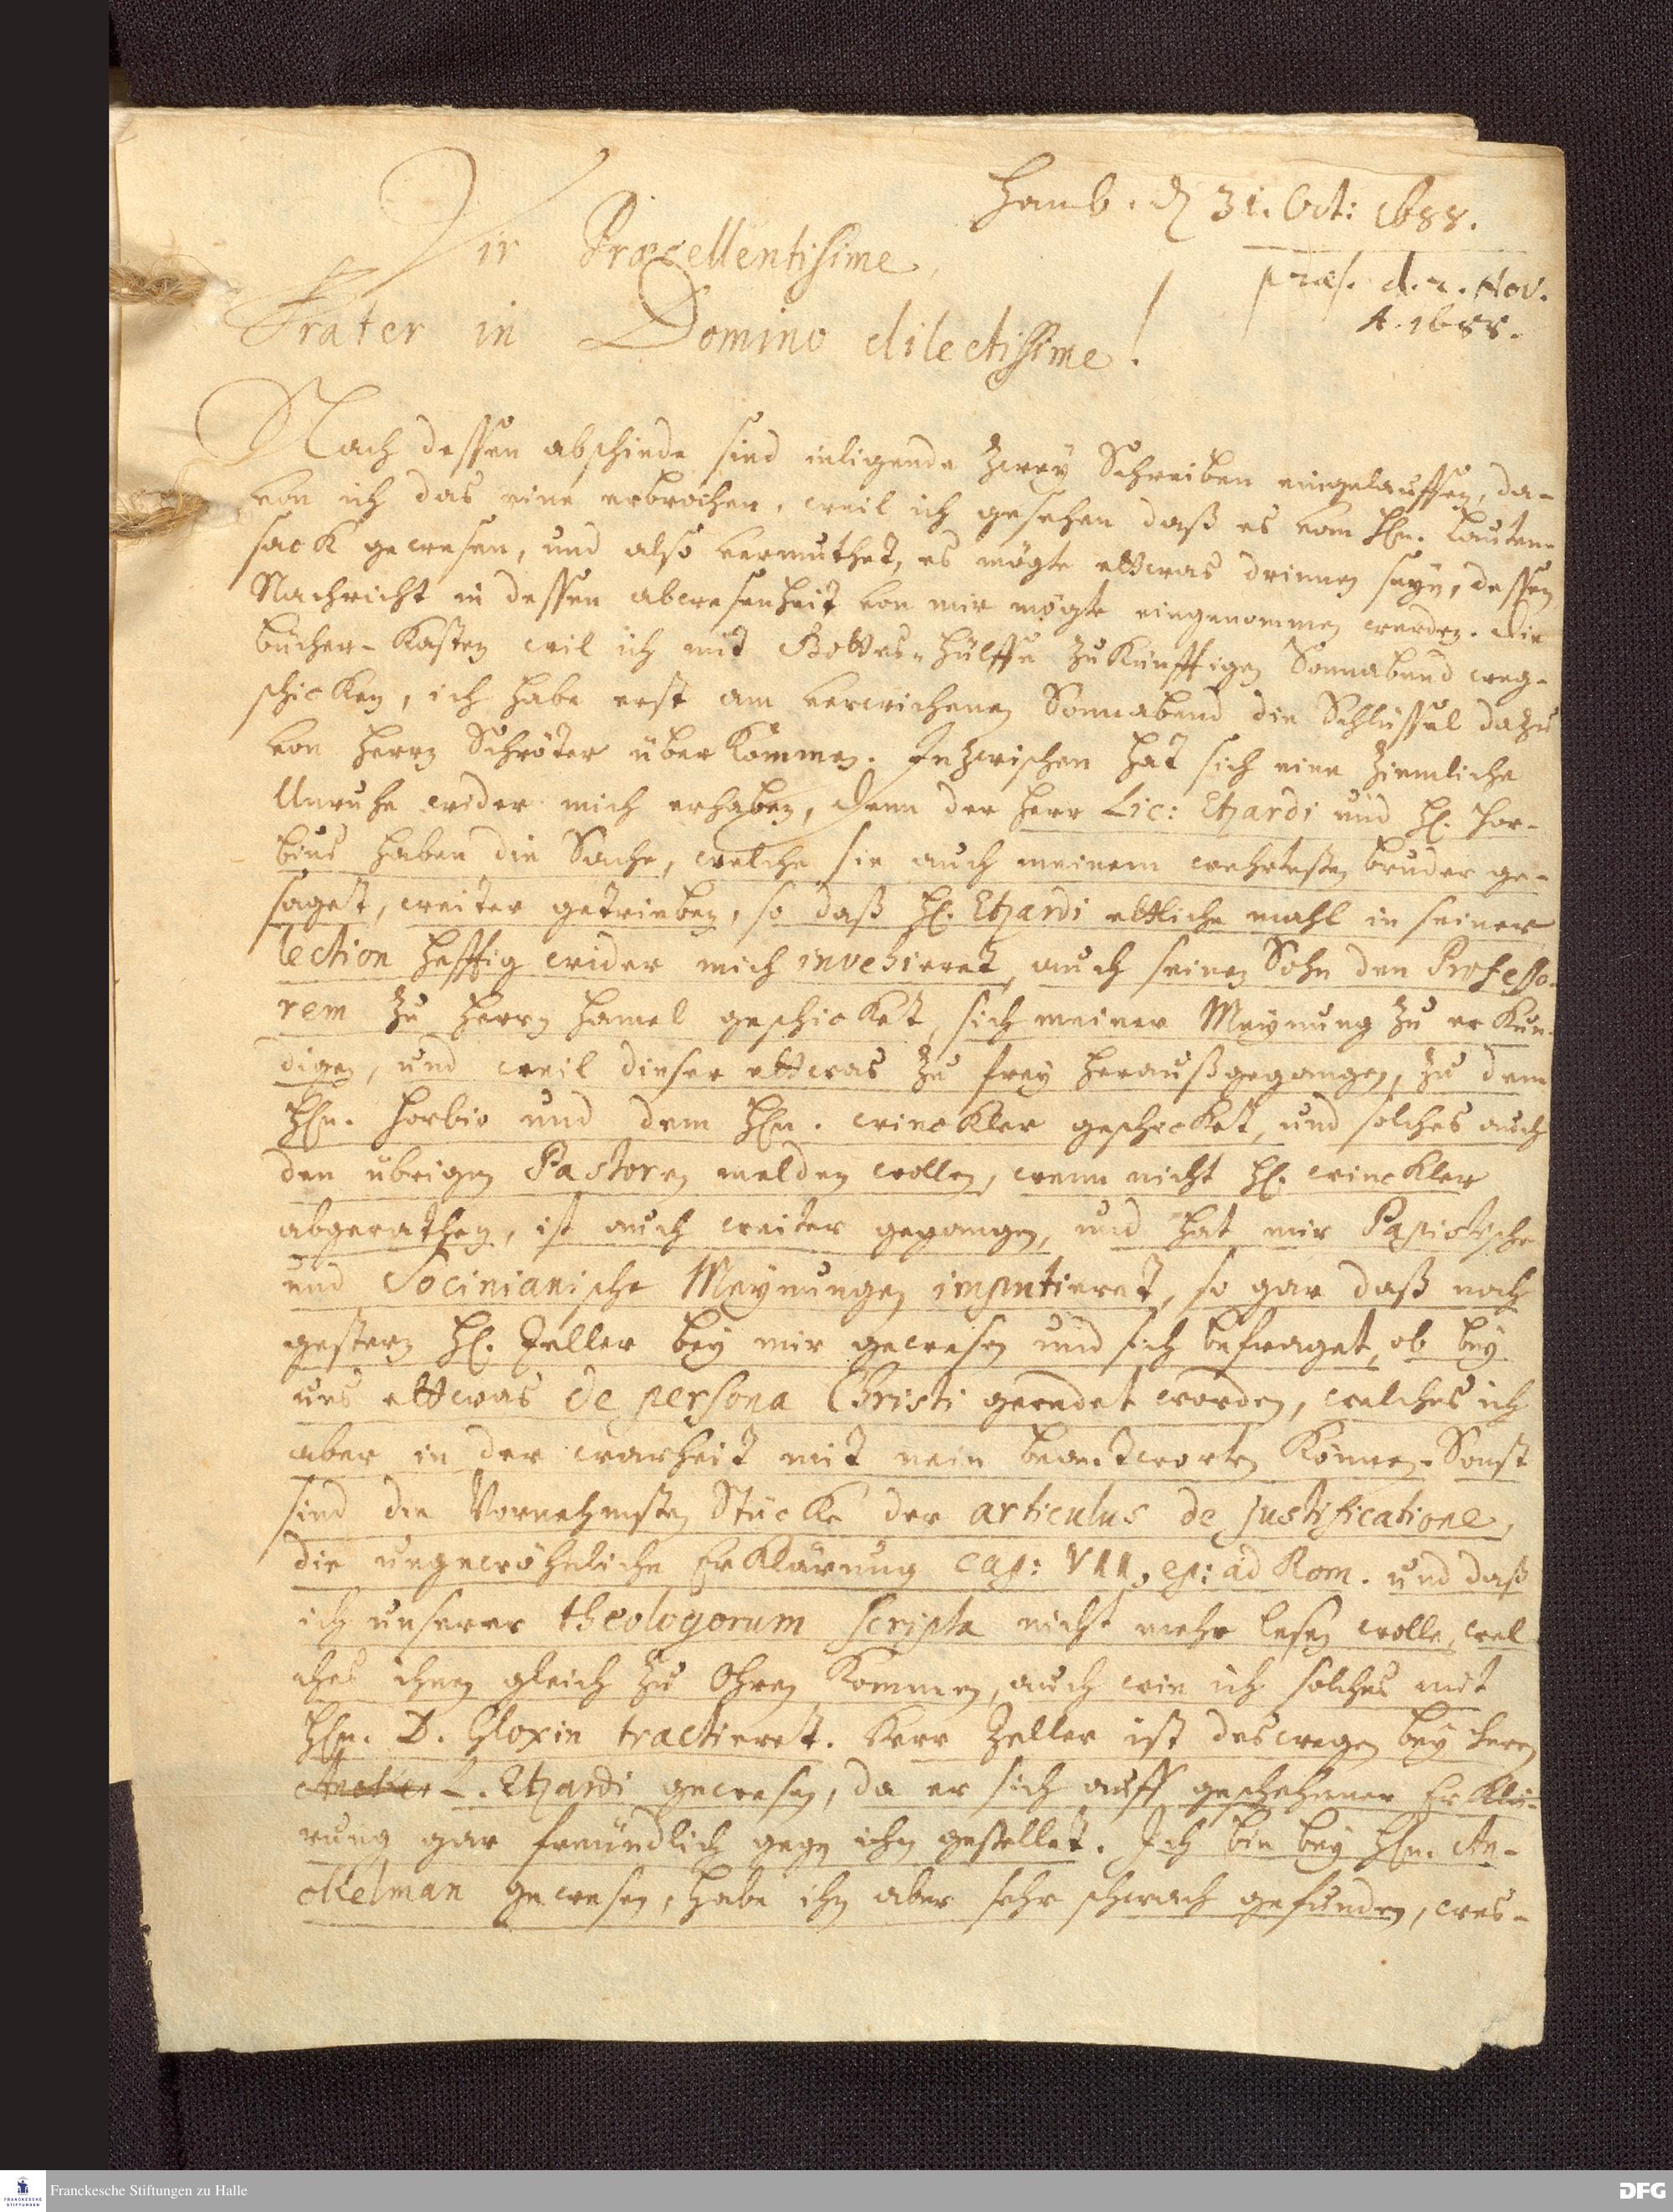 Hamb. d 31. Oct: 1688.
præs. d. 2. Nov.
A. 1688.
Vir Præcellentissime,
Frater in Domino dilectissime!
Nach dessen abschiede sind inligende zwey Schreiben eingelauffen, da-
von ich das eine erbrochen, weil ich gesehen daß es vom Hn. Lauten-
sack gewesen, und also vermuthet, es mögte ettwas drinnen seyn, dessen
Nachricht in dessen abwesenheit von mir mögte eingenommen werden. Die
bücher-Kasten wil ich mit Gottes-Hülffe zukünfftigen Sonnabend weg-
schicken, ich habe erst am verwichenen Sonnabend die Schlüssel dazu
von Herrn Schröter überkommen. Inzwischen hat sich eine ziemliche
Unruhe wider mich erhaben, denn der Herr Lic: Etzardi und H. Hor-
bius haben die Sache, welche sie auch meinem wehrtesten bruder ge-
saget, weiter getrieben, so daß H. Etzardi ettliche mahl in seiner
lection hefftig wider mich invehieret, auch seinen Sohn den Professo-
rem zu Herrn Hamel geschicket, sich meiner Meynung zu erkun-
digen, und weil dieser ettwas zu frey heraußgegangen, zu dem
Hn. Horbio und dem Hn. Winckler geschicket, und solches auch
den übrigen Pastoren melden wollen, wenn nicht H. Winckler
abgerathen, ist auch weiter gegangen, und hat mir Papistische
und Socinianische Meynungen imputieret, so gar daß noch
gestern H. Zeller bey mir gewesen und sich befraget, ob bey
uns ettwas de persona Christi geredet worden, welches ich
aber in der warheit mit nein beantworten können. Sonst
sind die Vornehmsten Stücke der articulus de justificatione,
die ungewöhnliche Erklärung cap: VII, ep: ad Rom. und daß
ich unserer theologorum scripta nicht mehr lesen wolle, wel
ches ihnen gleich zu Ohren kommen, auch wie ich solches mit
Hn. D. Gloxin tractieret. Herr Zeller ist deswegen bey Herrn
L. Etzardi gewesen, da er sich auff geschehener Erklä-
rung gar freundlich gegen ihn gestellet. Ich bin bey Hn. An-
ckelman gewesen, habe ihn aber sehr schwach gefunden, wes-
Franckesche Stiftungen zu Halle
DFG